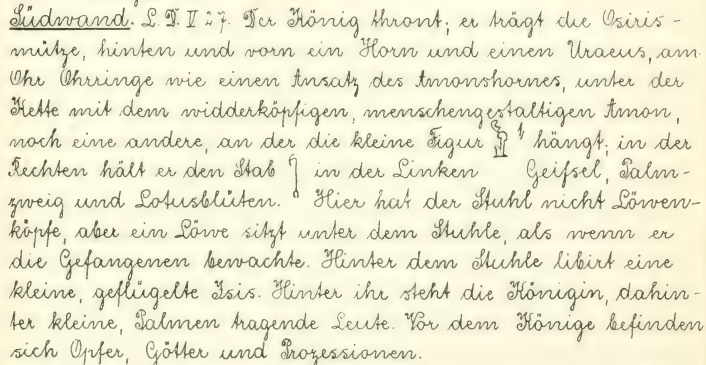 Südwand. L. D. V 27. Der König thront; er trägt die Osiris-
mütze, hinten und vorn ein Horn und einen Uraeus, am
Ohr Ohrringe wie einen Ansatz des Amonshornes, unter der
Kette mit dem widderköpfigen, menschengestaltigen Amon,
noch eine andere, an der die kleine Figur hängt; in der
Rechten hält er den Stab in der Linken Geifsel, Palm-
zweig und Lotusblüten. Hier hat der Stuhl nicht Löwen-
köpfe, aber ein Löwe sitzt unter dem Stuhle, als wenn er
die Gefangenen bewachte. Hinter dem Stuhle libirt eine
kleine, geflügelte Isis. Hinter ihr steht die Königin, dahin-
ter kleine, Palmen tragende Leute. Vor dem Könige befinden
sich Opfer, Götter und Prozessionen.